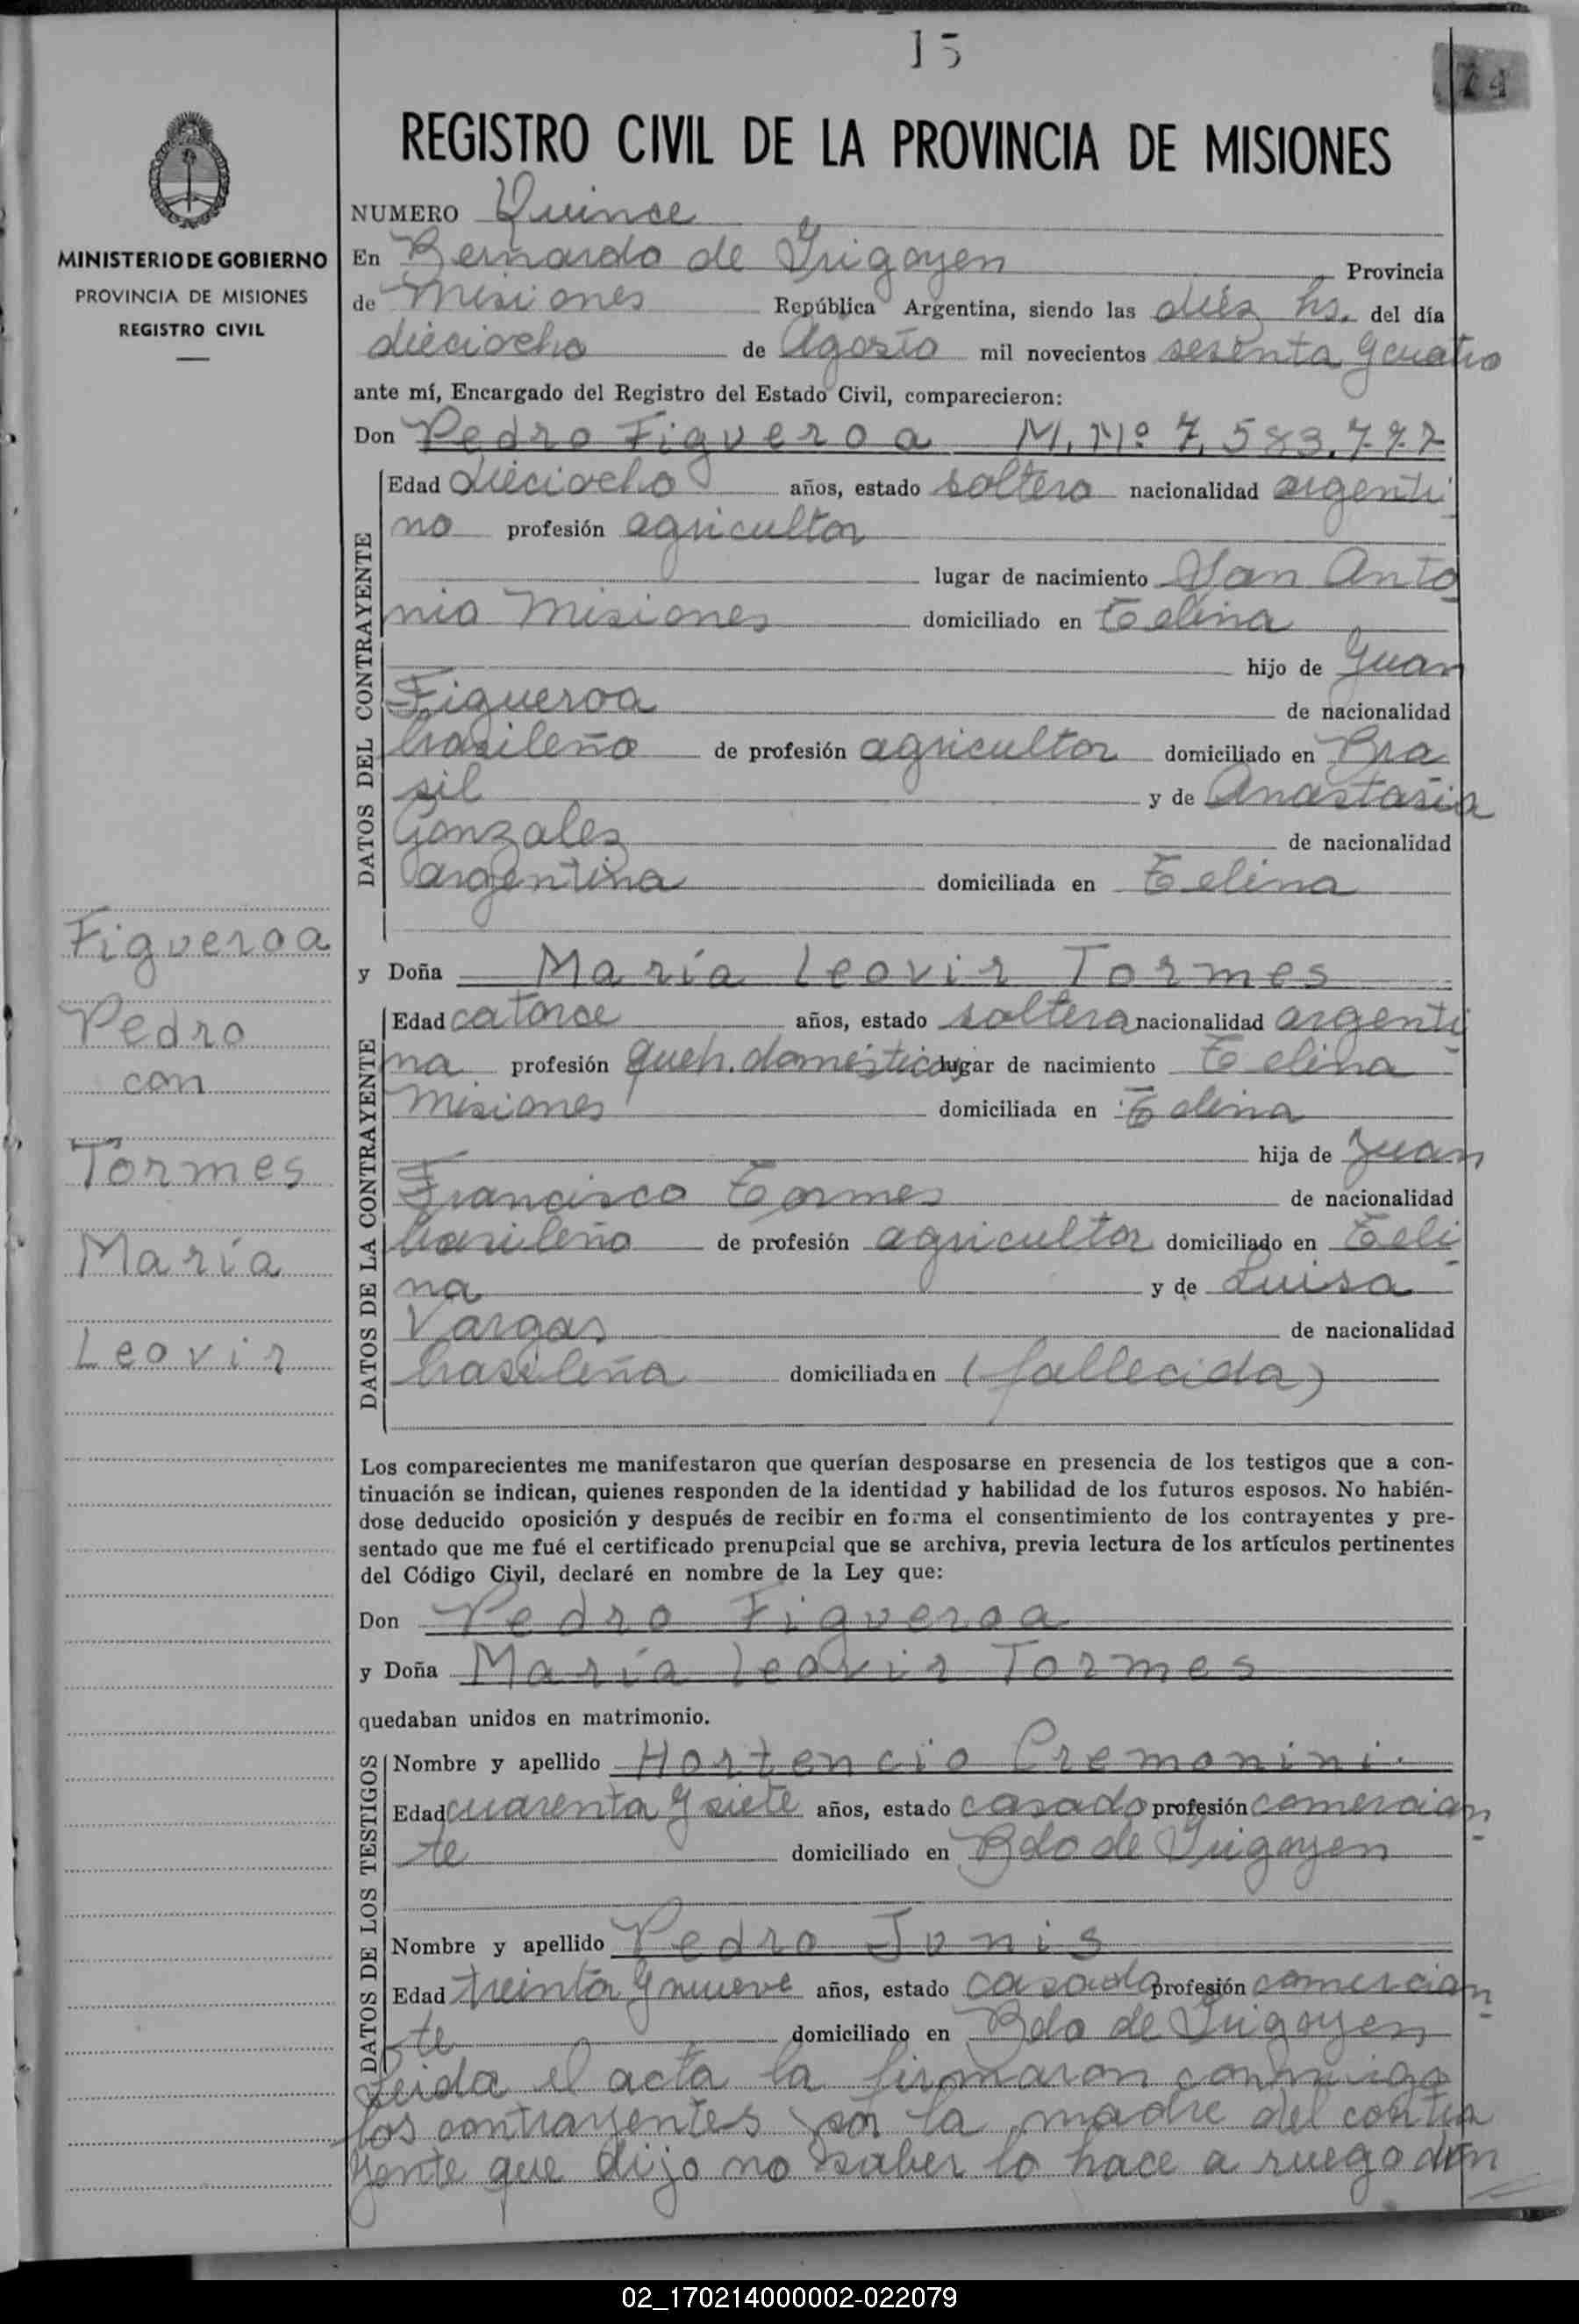 15
74
REGISTRO CIVIL DE LA PROVINCIA DE MISIONES
MINISTERIO DE GOBIERNO
PROVINCIA DE MISIONES
REGISTRO CIVIL
NUMERO Quince
En Bernardo de Irigoyen Provincia
de Misiones República Argentina, siendo las diéz hs. del día
dieciocho de Agosto mil novecientos sesenta y cuatro
ante mí, Encargado del Registro del Estado Civil, comparecieron:
Don Pedro Figueroa M. Nº 7.583.777
DATOS DEL CONTRAYENTE
Edad dieciocho años, estado soltero nacionalidad argenti
no profesión agricultor
lugar de nacimiento San Anto
nio Misiones domiciliado en Tolina
hijo de Juan
Figueroa de nacionalidad
brasileño de profesión agricultor domiciliado en Bra
sil y de Anastasia
Gonzales de nacionalidad
argentina domiciliada en Tolina
Figueroa
Pedro
con
Tormes
María
Leovir
y Doña María Leovir Tormes
DATOS DE LA CONTRAYENTE
Edad catorce años, estado soltera nacionalidad argenti
na profesión queh. domésticos lugar de nacimiento Tolina
Misiones domiciliada en Tolina
hija de Juan
Francisco Tormes de nacionalidad
brasileño de profesión agricultor domiciliado en Toli
na y de Luisa
Vargas de nacionalidad
brasileña domiciliada en (fallecida)
Los comparecientes me manifestaron que querían desposarse en presencia de los testigos que a con-
tinuación se indican, quienes responden de la identidad y habilidad de los futuros esposos. No habién-
dose deducido oposición y después de recibir en forma el consentimiento de los contrayentes y pre-
sentado que me fué el certificado prenupcial que se archiva, previa lectura de los artículos pertinentes
del Código Civil, declaré en nombre de la Ley que:
Don Pedro Figueroa
y Doña María Leovir Tormes
quedaban unidos en matrimonio.
DATOS DE LOS TESTIGOS
Nombre y apellido Hortencio Cremonini.
Edad cuarenta y siete años, estado casado profesión comercian-
te domiciliado en Bdo de Irigoyen
Nombre y apellido Pedro Junis
Edad treinta y nueve años, estado casado profesión comercian-
te domiciliado en Bdo de Irigoyen
Leida el acta la firmaron conmigo
los contrayentes por la madre del contra
yente que dijo no saber lo hace a ruego don
02_170214000002-022079